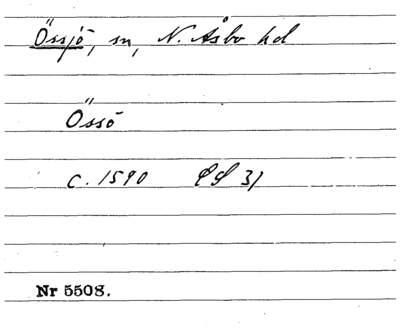 Össjö, sn, N. Åsbo hd
Össö
c. 1590 LS 31
Nr 5508.